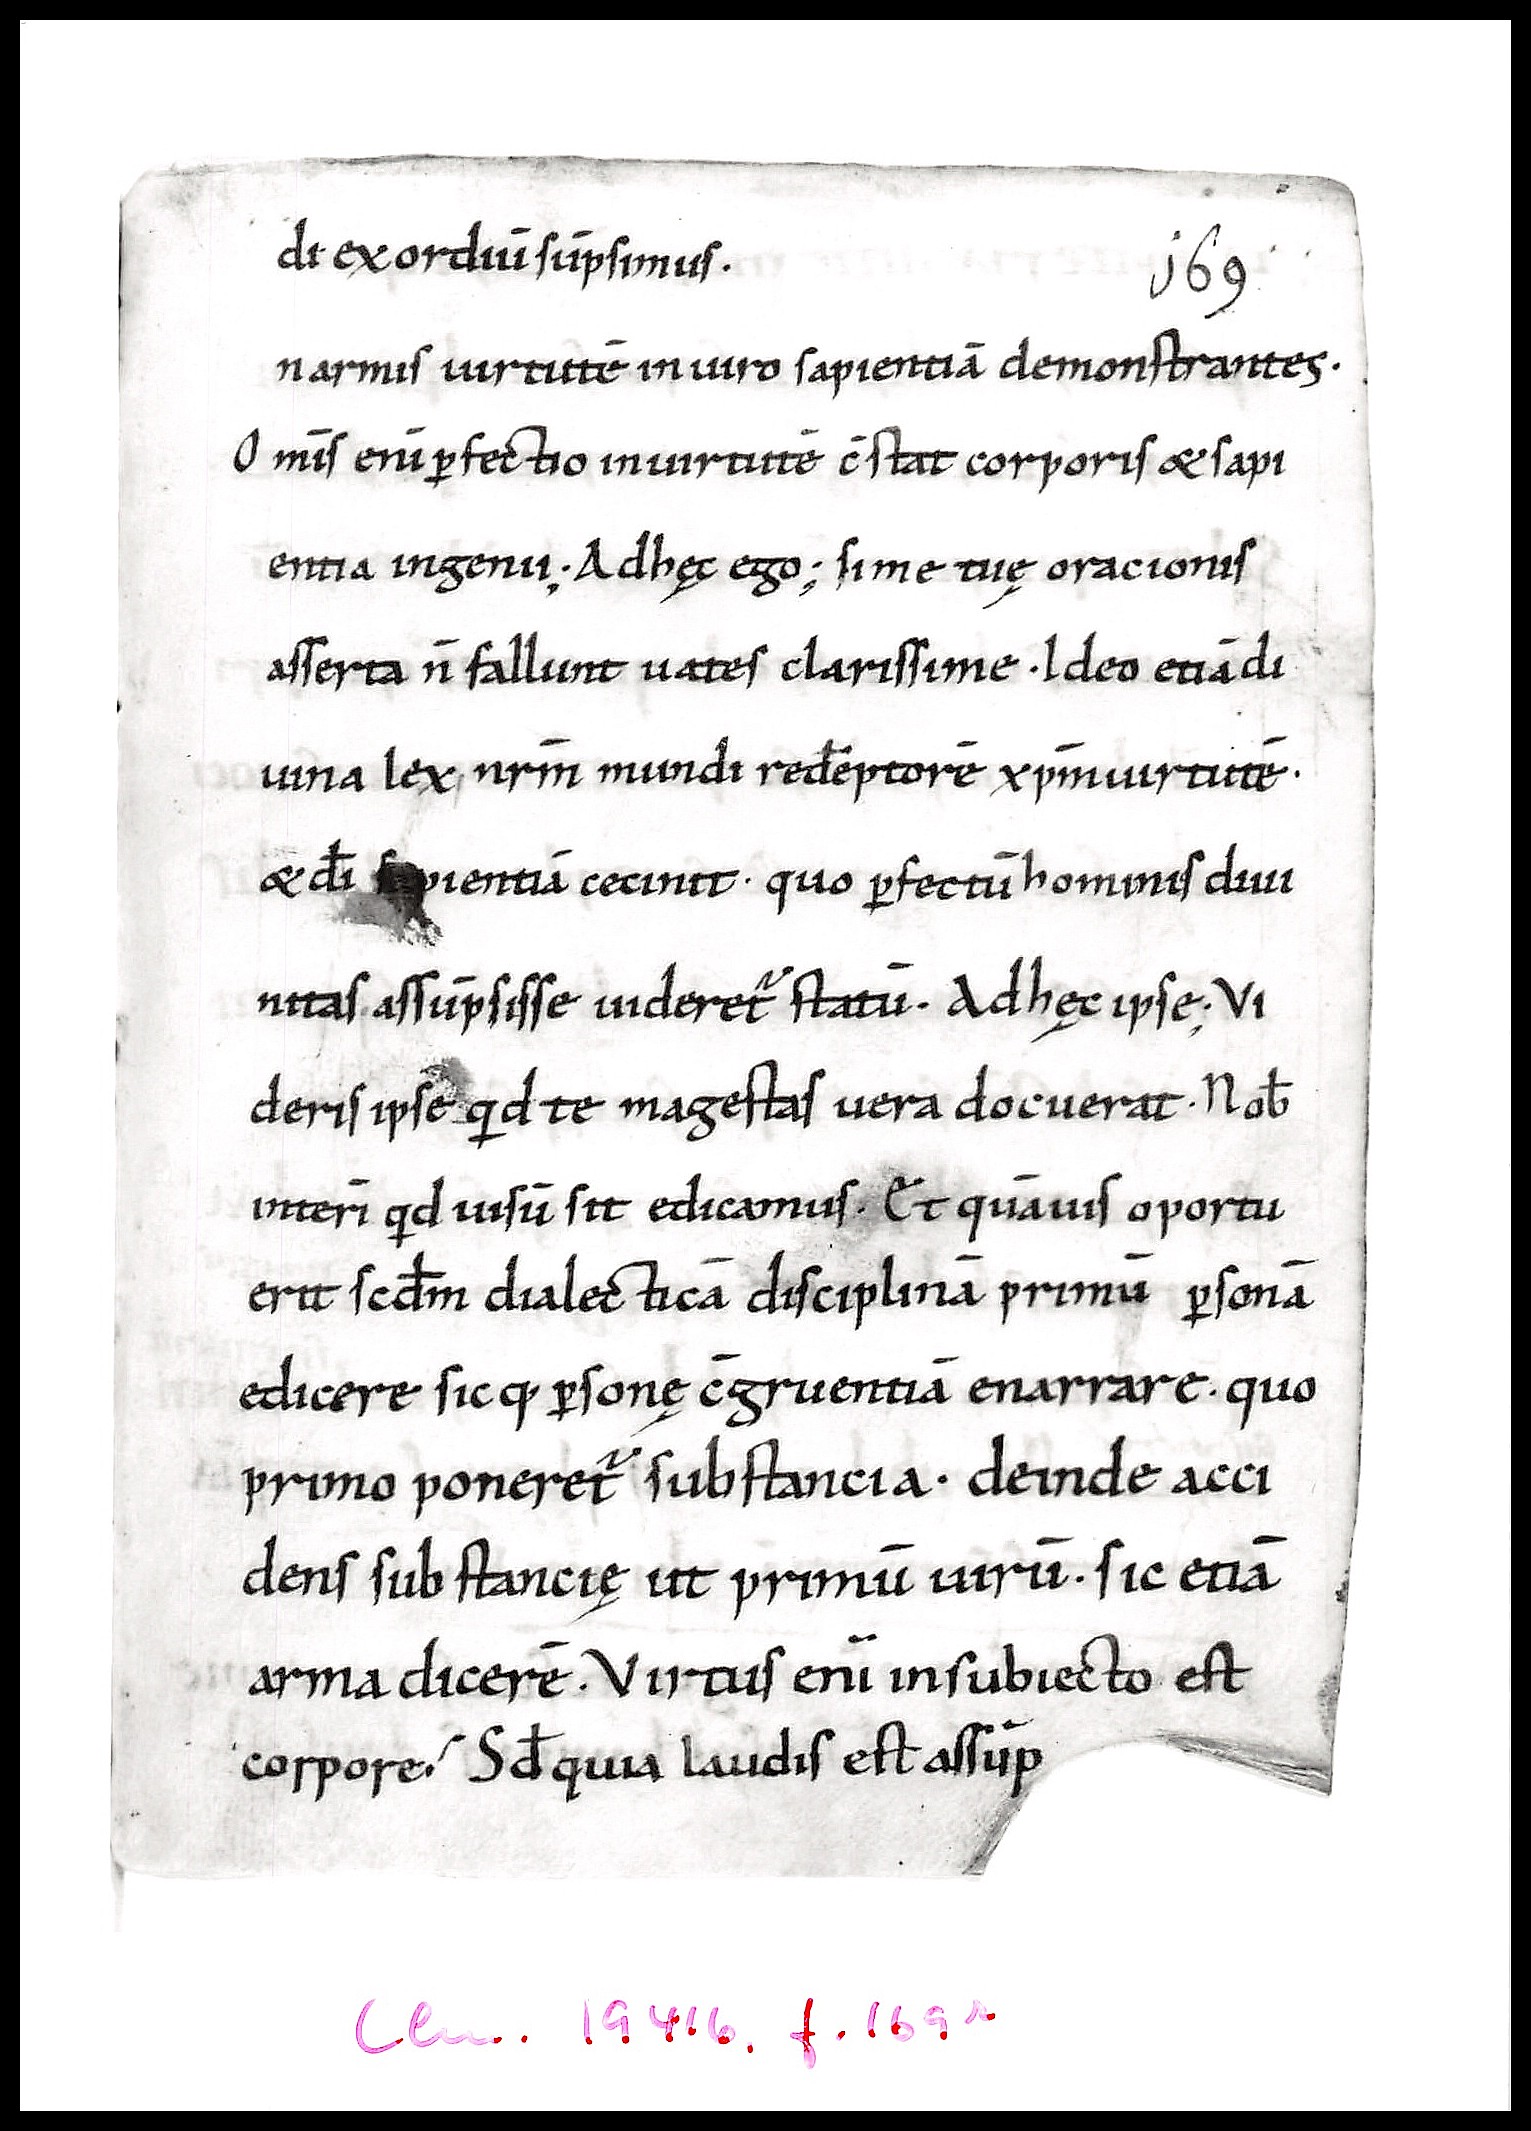 di exordiū sūpsimus.
j69
n armis uirtutē in uiro sapientiā demonstrantes.
O mīs enī ꝑfectio in uirtutē c̄stat corporis & sapi
entia ingenii; Ad hęc ego; si me tuę oracionis
asserta n̄ fallunt uates clarissime. Ideo etiā di
uina lex nrm̄ mundi redēptorē xpm̄ uirtutē.
& dī sapientiā cecinit. quo ꝑfectū hominis diui
nitas assūpsisse uideret᷑ statū. Ad hęc ipse; Vi
deris ipse qd te magestas uera docuerat. Nob̄
interī qd uisū sit edicamus. Et quāuis oportu
erit scdm̄ dialecticā disciplinā primū ꝑsonā
edicere sicq; ꝑsonę c̄gruentiā enarrare. quo
primo poneret᷑ substancia. deinde acci
dens substancię ut primū uirū. sic etiā
arma dicerē. Virtus enī in subiecto est
corpore. Sd̄ quia laudis est assūp
Clm. 19416. f. 169r